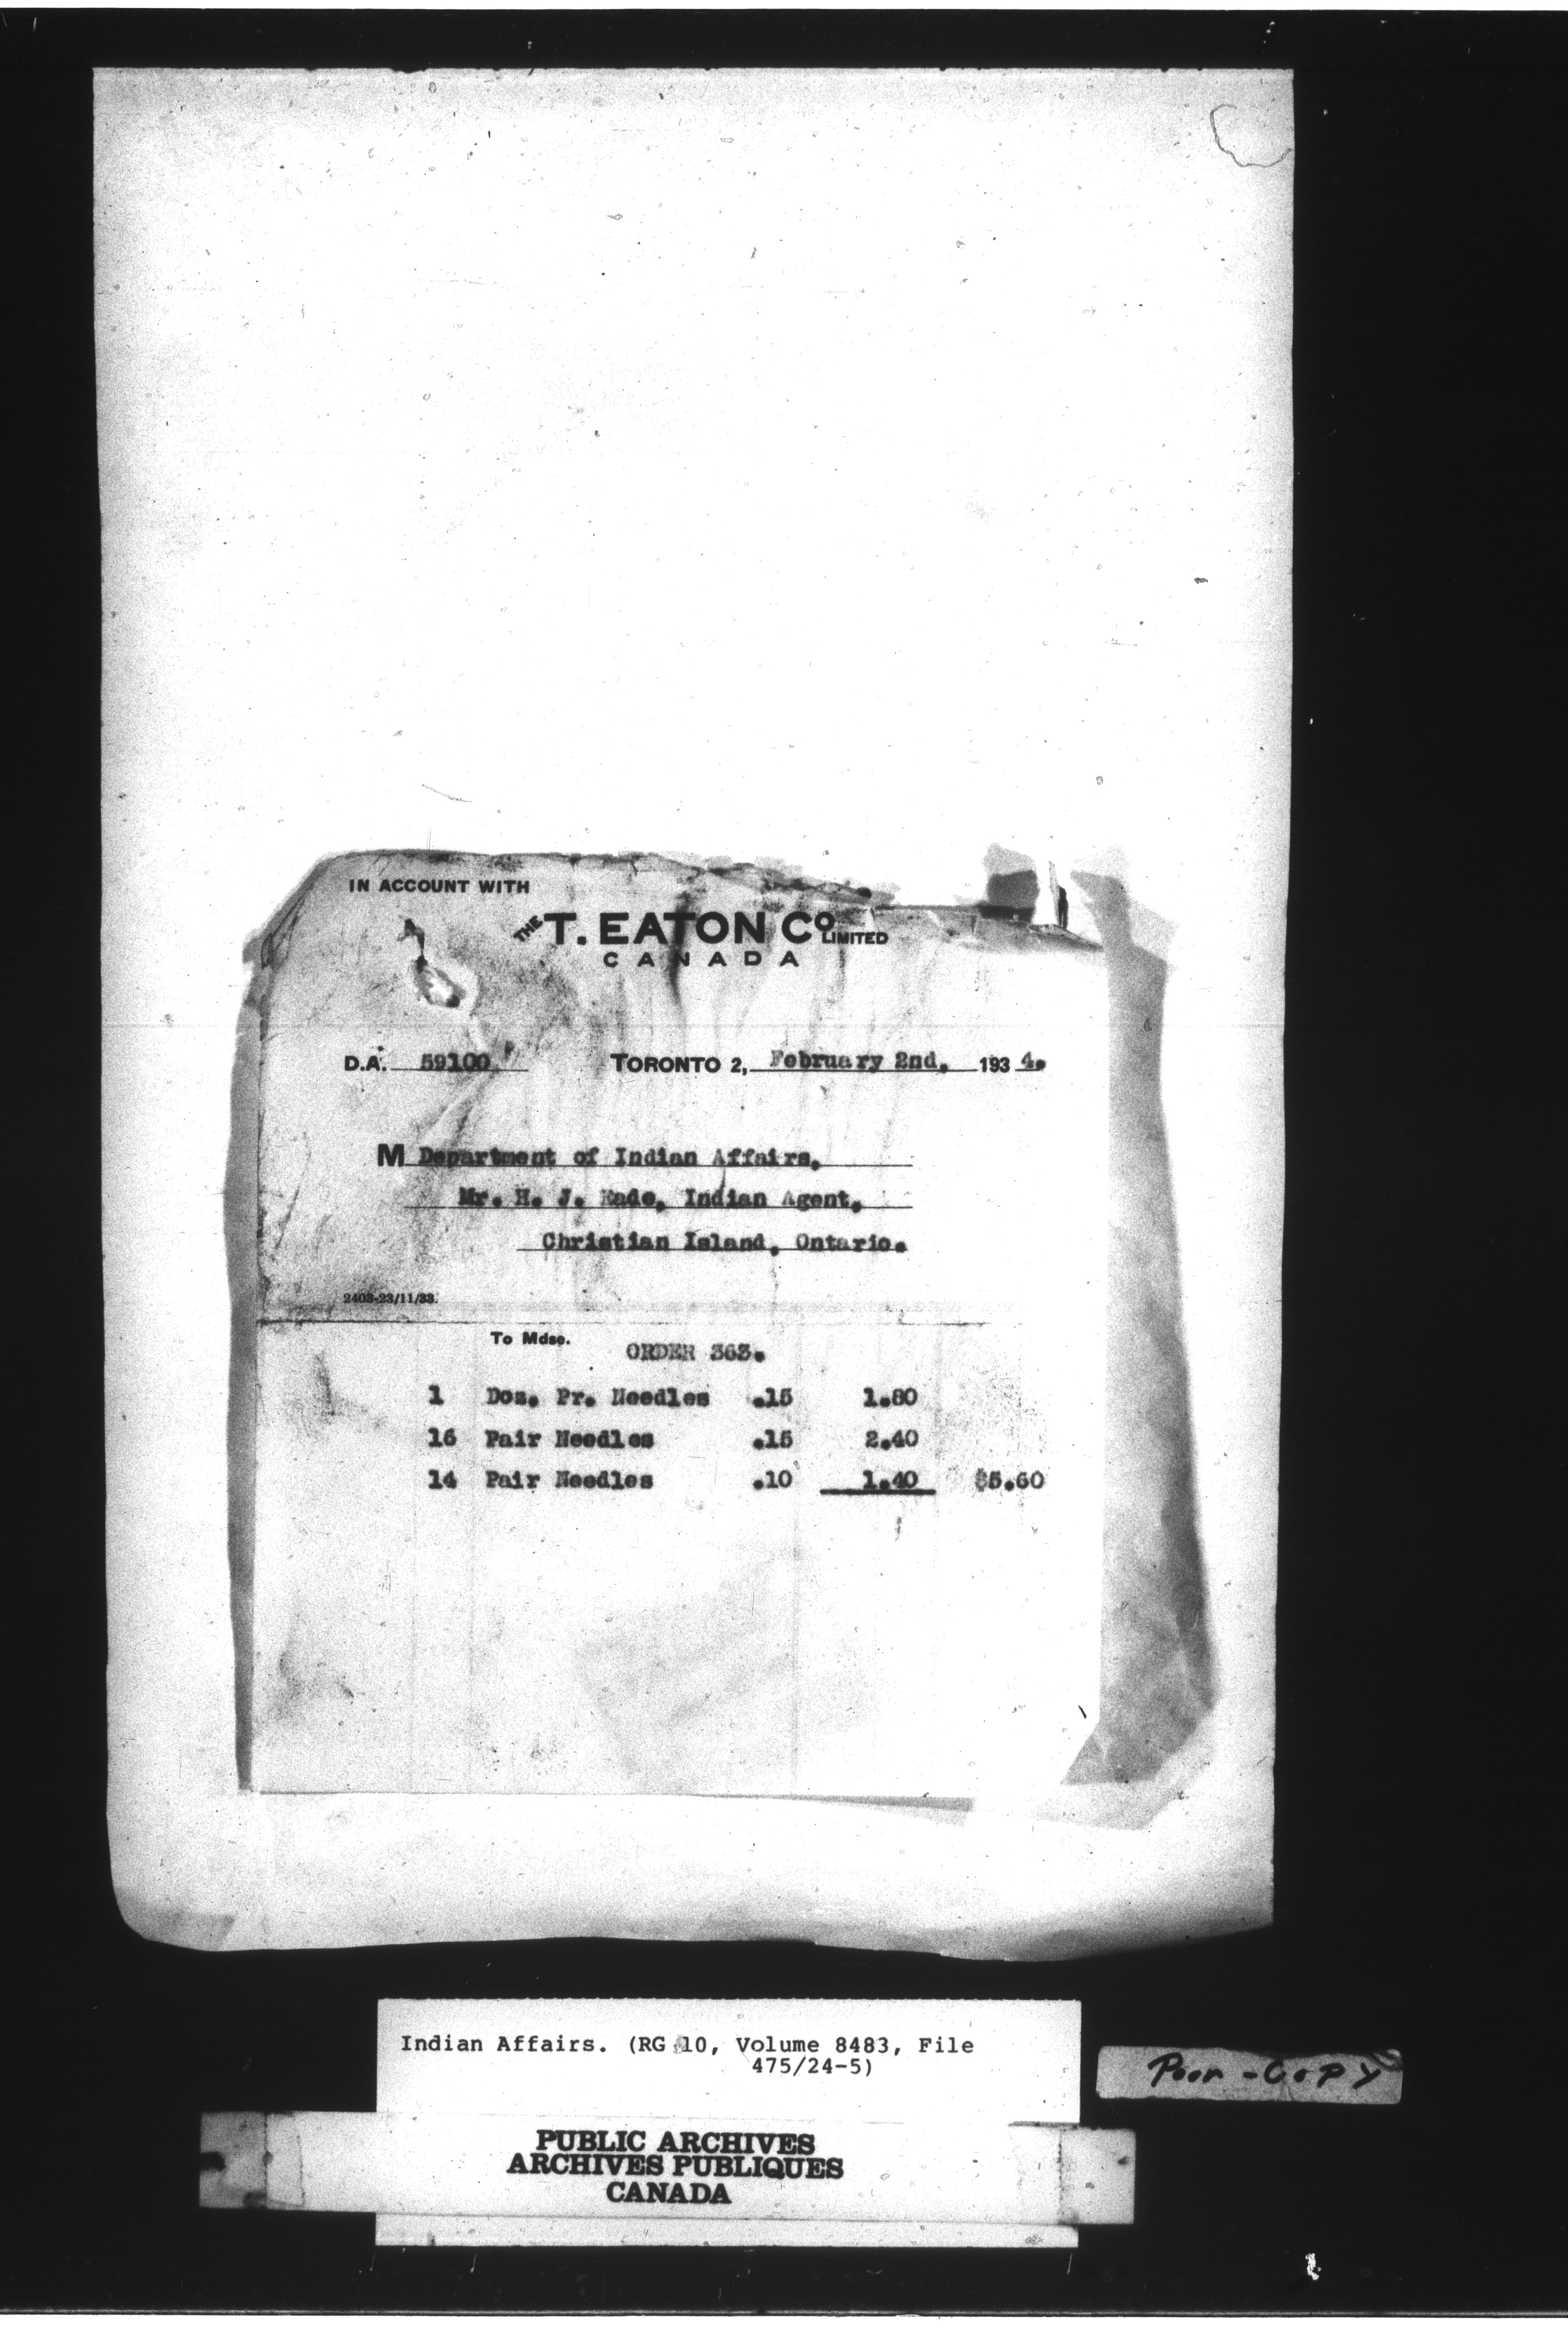 IN ACCOUNT WITH
THE T. EATON CO LIMITED
CANADA
D.A. 59100 TORONTO 2, February 2nd. 1934.
M Department of Indian Affairs,
Mr. H. J. Eade, Indian Agent,
Christian Island, Ontario.
2403-23/11/33.
To Mdse.
ORDER 363.
1 Doz. Pr. Needles .15 1.80
16 Pair Needles .15 2.40
14 Pair Needles .10 1.40 $5.60
Indian Affairs. (RG 10, Volume 8483, File
475/24-5)
Poor-Copy
PUBLIC ARCHIVES
ARCHIVES PUBLIQUES
CANADA